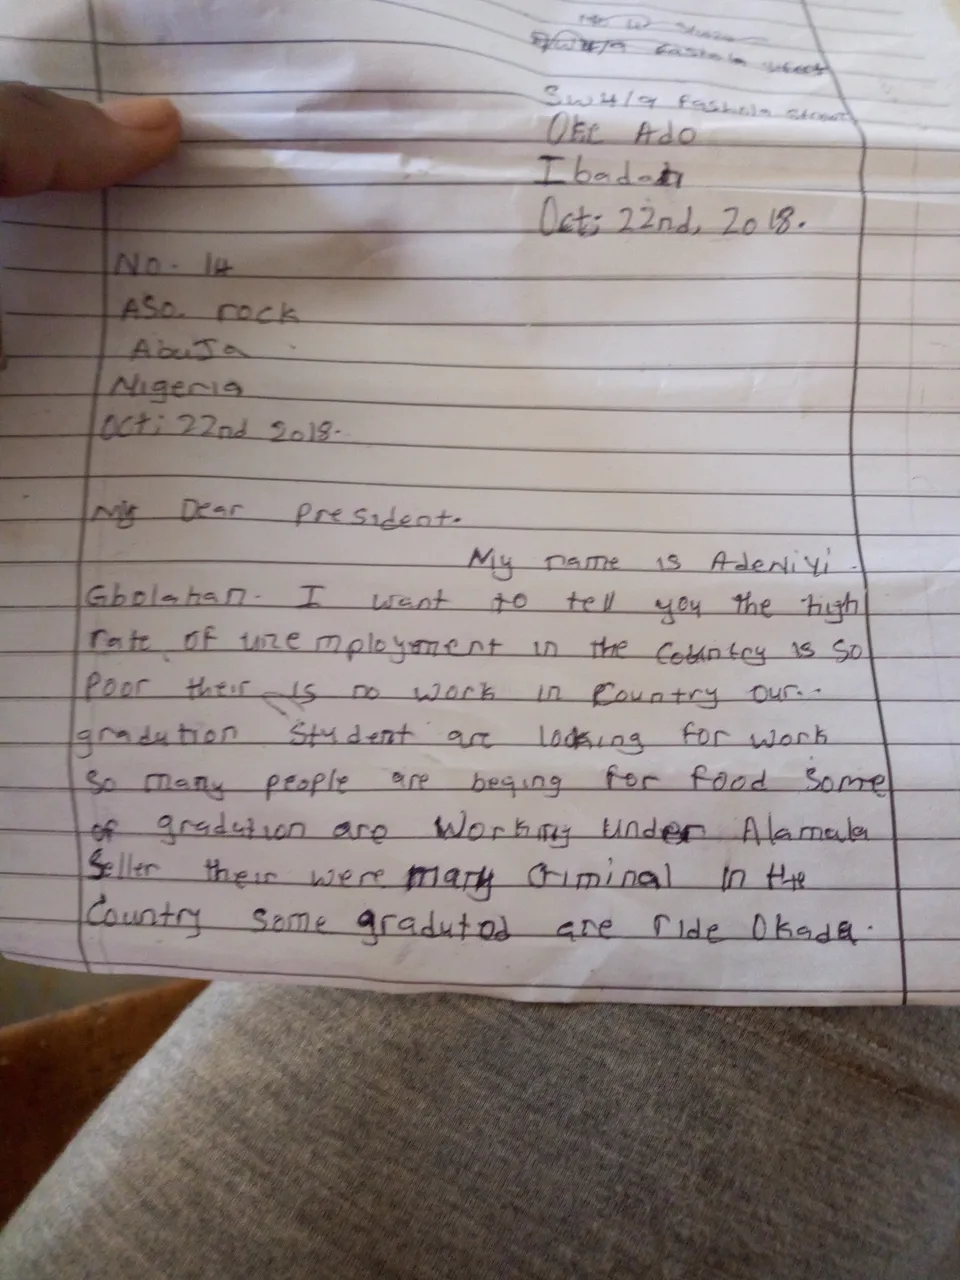 SW4/9 Fashola Street
Oke Ado
Ibadan
Oct; 22nd, 2018.
No. 14
ASO. rock
Abuja
Nigeria
Oct; 22nd 2018.
My Dear President.
My name is Adeniyi
Gbolahan. I want to tell you the high
rate of unemployement in the Country is so
Poor their is no work in Country our..
gradution Student are looking for work
So many people are beging for food Some
of gradution are Working Under Alamala
Seller their were many Criminal in the
Country Some graduted are ride Okada.